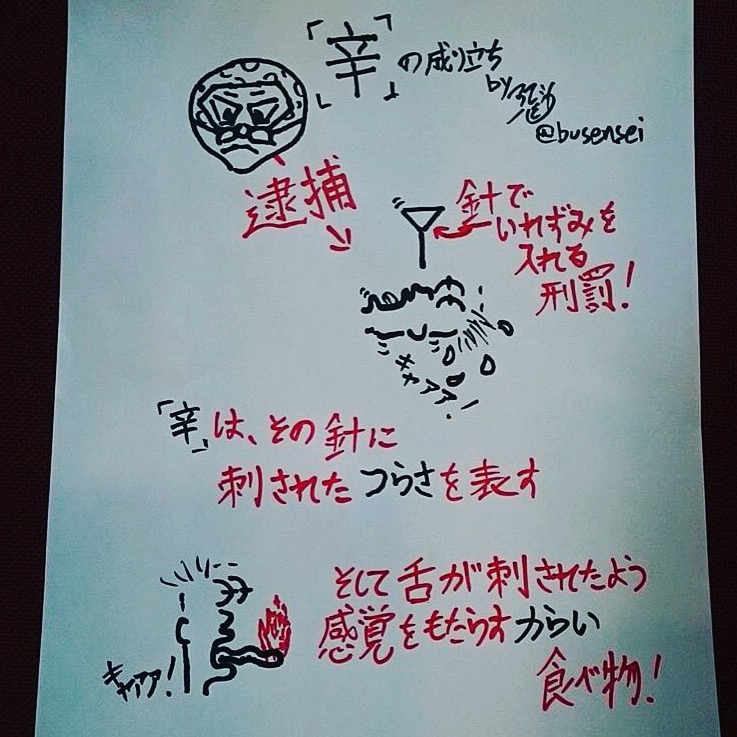 「辛」の成り立ち
by
@busensei
逮捕
針で
いれずみを
入れる
刑罰!
キャアア!
「辛」は、その針に
刺されたつらさを表す
そして舌が刺されたよう
感覚をもたらすからい
食べ物!
キャアア!